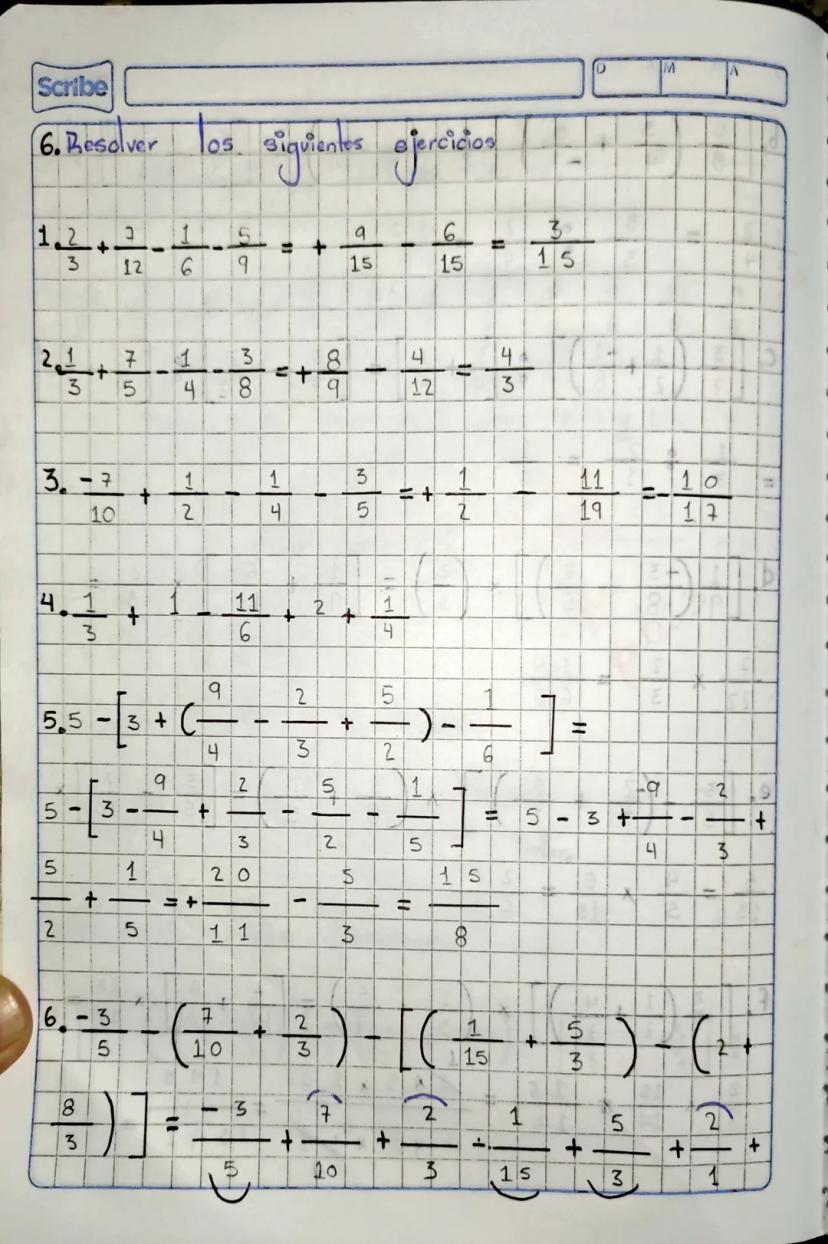 Scribe
D M A
6. Resolver los siguientes ejercicios
1. 2/3 + 7/12 - 1/6 - 5/9 = + 9/15 - 6/15 = 3/15
2. 1/3 + 7/5 - 1/4 - 3/8 = + 8/9 - 4/12 = 4/3
3. -7/10 + 1/2 - 1/4 - 3/5 = + 1/2 - 11/19 = - 10/17
4. 1/3 + 1 - 11/6 + 2 + 1/4
5. 5 - [3 + (9/4 - 2/3 + 5/2) - 1/6] =
5 - [3 - 9/4 + 2/3 - 5/2 - 1/5] = 5 - 3 + 9/4 - 2/3 +
5/2 + 1/5 = + 20/11 - 5/3 = 15/8
6. -3/5 - (7/10 + 2/3) - [(1/15 + 5/3) - (2 +
8/3)] = -3/5 + 7/10 + 2/3 - 1/15 + 5/3 + 2/1 +